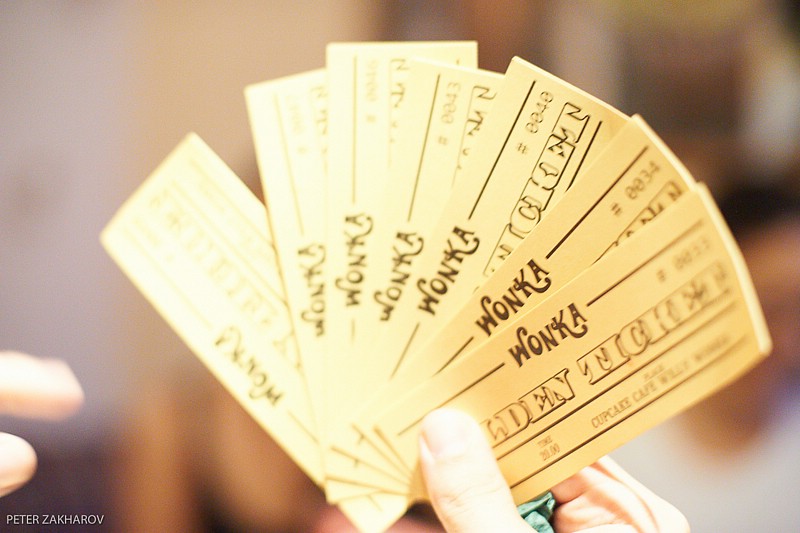 WONKA
WONKA
WONKA
WONKA
# 0043
WONKA
# 0040
TICKET
WONKA
# 0034
WONKA
# 0033
LDEN TICKET
TIME
20.00
PLACE
CUPCAKE CAFE WILLY WONKA
PETER ZAKHAROV